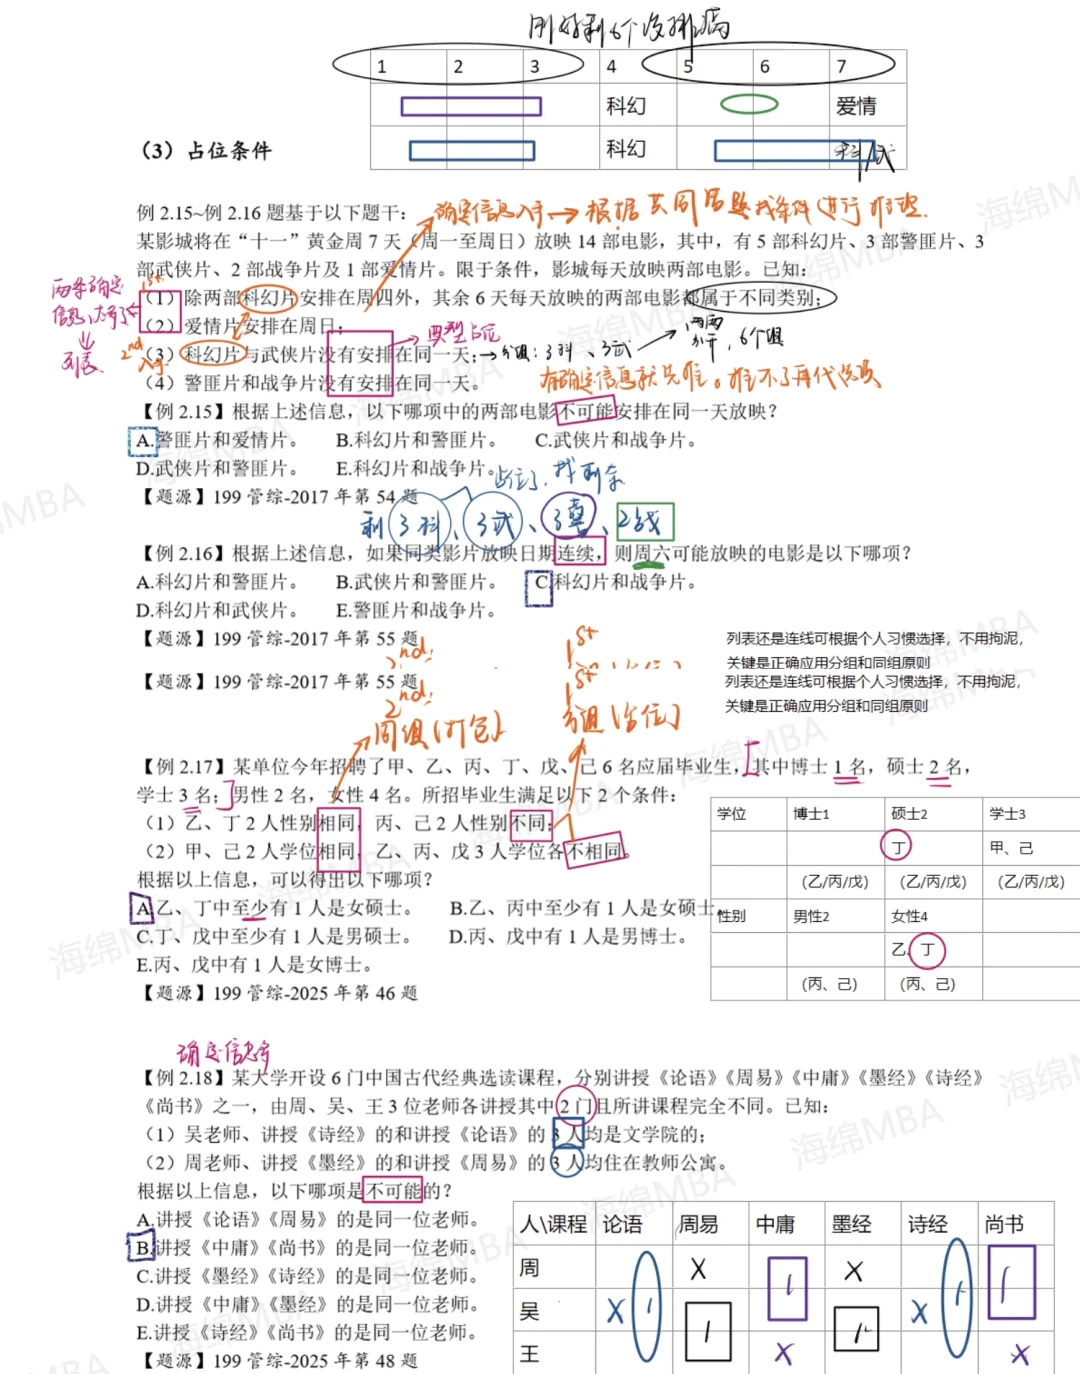 刚好剩6个没排满
1 2 3 4 5 6 7
科幻 爱情
科幻 科/武
（3）占位条件
例 2.15~例 2.16 题基于以下题干：
确定信息入手→根据共同话题找条件进行推理.
某影城将在“十一”黄金周 7 天（周一至周日）放映 14 部电影，其中，有 5 部科幻片、3 部警匪片、3
部武侠片、2 部战争片及 1 部爱情片。限于条件，影城每天放映两部电影。已知：
两条确定
信息,
列表
1st.
（1）除两部科幻片安排在周四外，其余 6 天每天放映的两部电影都属于不同类别；
（2）爱情片安排在周日；
典型占位
2nd
入手
（3）科幻片与武侠片没有安排在同一天；→分组：3科、3武→两两分开，6个组
（4）警匪片和战争片没有安排在同一天。
有确定信息就先推。推不了再代选项
【例 2.15】根据上述信息，以下哪项中的两部电影不可能安排在同一天放映？
A.警匪片和爱情片。 B.科幻片和警匪片。 C.武侠片和战争片。
D.武侠片和警匪片。 E.科幻片和战争片。
占位了、找剩余
【题源】199 管综-2017 年第 54 题
剩3科、3武、3警、2战
【例 2.16】根据上述信息，如果同类影片放映日期连续，则周六可能放映的电影是以下哪项？
A.科幻片和警匪片。 B.武侠片和警匪片。 C.科幻片和战争片。
D.科幻片和武侠片。 E.警匪片和战争片。
【题源】199 管综-2017 年第 55 题
列表还是连线可根据个人习惯选择，不用拘泥，
关键是正确应用分组和同组原则
2nd:
1st
【题源】199 管综-2017 年第 55 题
列表还是连线可根据个人习惯选择，不用拘泥，
关键是正确应用分组和同组原则
2nd:
同组(打包)
1st
分组(占位)
【例 2.17】某单位今年招聘了甲、乙、丙、丁、戊、己 6 名应届毕业生，其中博士 1 名，硕士 2 名，
学士 3 名；男性 2 名，女性 4 名。所招毕业生满足以下 2 个条件：
（1）乙、丁 2 人性别相同，丙、己 2 人性别不同；
（2）甲、己 2 人学位相同，乙、丙、戊 3 人学位各不相同。
根据以上信息，可以得出以下哪项？
A.乙、丁中至少有 1 人是女硕士。 B.乙、丙中至少有 1 人是女硕士。
C.丁、戊中至少有 1 人是男硕士。 D.丙、戊中有 1 人是男博士。
E.丙、戊中有 1 人是女博士。
【题源】199 管综-2025 年第 46 题
学位 博士1 硕士2 学士3
丁 甲、己
(乙/丙/戊) (乙/丙/戊) (乙/丙/戊)
性别 男性2 女性4
乙、丁
(丙、己) (丙、己)
确定信息多
【例 2.18】某大学开设 6 门中国古代经典选读课程，分别讲授《论语》《周易》《中庸》《墨经》《诗经》
《尚书》之一，由周、吴、王 3 位老师各讲授其中 2 门且所讲课程完全不同。已知：
（1）吴老师、讲授《诗经》的和讲授《论语》的 3 人均是文学院的；
（2）周老师、讲授《墨经》的和讲授《周易》的 3 人均住在教师公寓。
根据以上信息，以下哪项是不可能的？
A.讲授《论语》《周易》的是同一位老师。
B.讲授《中庸》《尚书》的是同一位老师。
C.讲授《墨经》《诗经》的是同一位老师。
D.讲授《中庸》《墨经》的是同一位老师。
E.讲授《诗经》《尚书》的是同一位老师。
【题源】199 管综-2025 年第 48 题
人\课程 论语 周易 中庸 墨经 诗经 尚书
周 X X
吴 X X
王 X X
海绵MBA